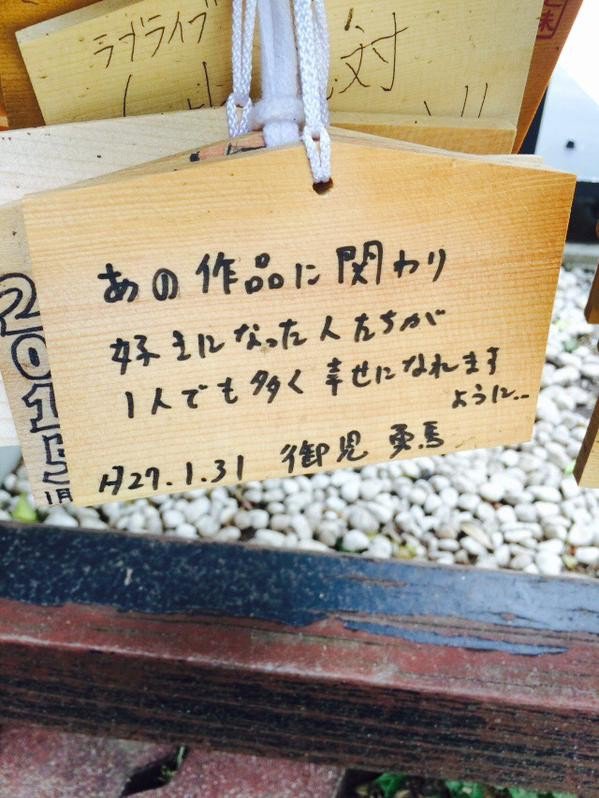 ラブライブ
対
あの作品に関わり
好きになった人たちが
1人でも多く幸せになれます
ように..
H27.1.31 御児 勇馬
2015
1月